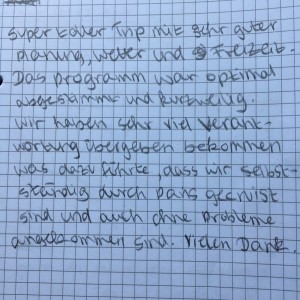 super toller Trip mit sehr guter
planung, wetter und Freizeit.
Das programm war optimal
abgestimmt und kurzweilig.
wir haben sehr viel Verant-
wortung übergeben bekommen
was dazu führte, dass wir selbst-
ständig durch Paris gecruist
sind und auch ohne probleme
angekommen sind. Vielen Dank.